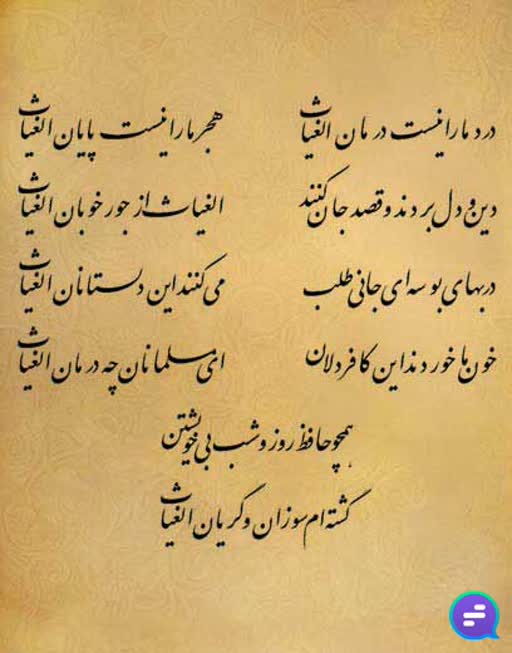 درد ما را نیست درمان الغیاث هجر ما را نیست پایان الغیاث
دین و دل بردند و قصد جان کنند الغیاث از جور خوبان الغیاث
در بهای بوسه‌ای جانی طلب می‌کنند این دلستانان الغیاث
خون ما خوردند این کافر دلان ای مسلمانان چه درمان الغیاث
همچو حافظ روز و شب بی خویشتن
گشته‌ام سوزان و گریان الغیاث